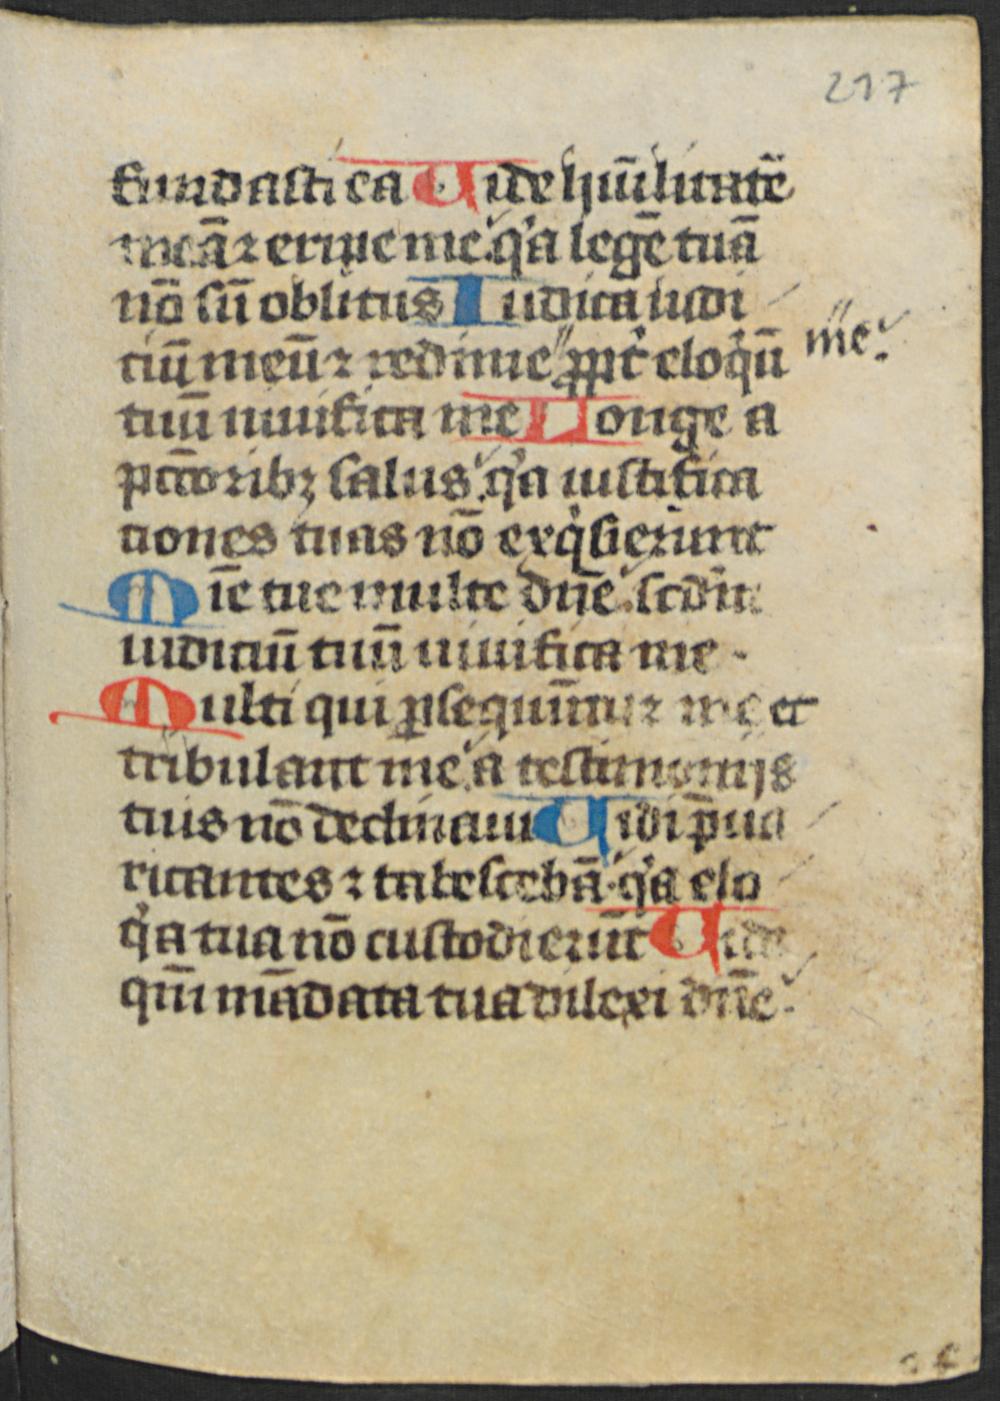 217
fundasti ea Vide hu̅ilitate̅
mea̅ ⁊ eripe me q'a lege̅ tua̅
no̅ su̅ oblitus Iudica iudi
ciu̅ meu̅ ⁊ redime me: ꝓpt̕ eloq'u̅
tuu̅ uiuifica me Longe a
pcc̅oribꝫ salus q'a iustifica
tiones tuas no̅ exq'sierunt
Mi̅e tue multe dn̅e scd̅m
iudiciu̅ tuu̅ uiuifica me
Multi qui ꝑsequu̅tur me et
tribulant me a testimonijs
tuis no̅ declinaui Vidi p̅ua
ricantes ⁊ tabesceba̅ q'a elo
q'a tua no̅ custodieru̅t Vide
qm̅ ma̅data tua dilexi dn̅e